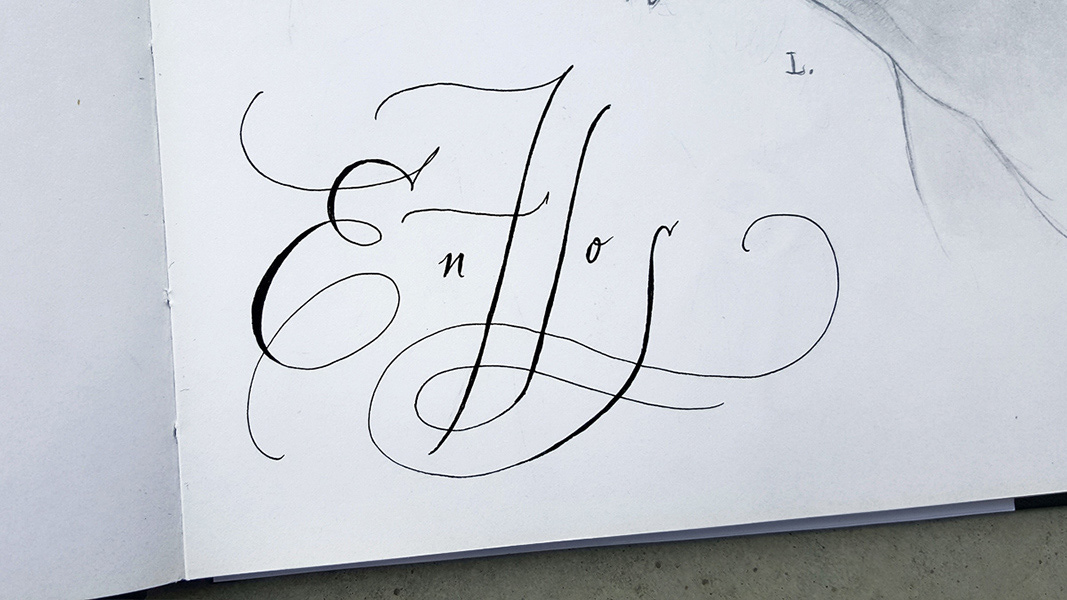 L.
EnFlos